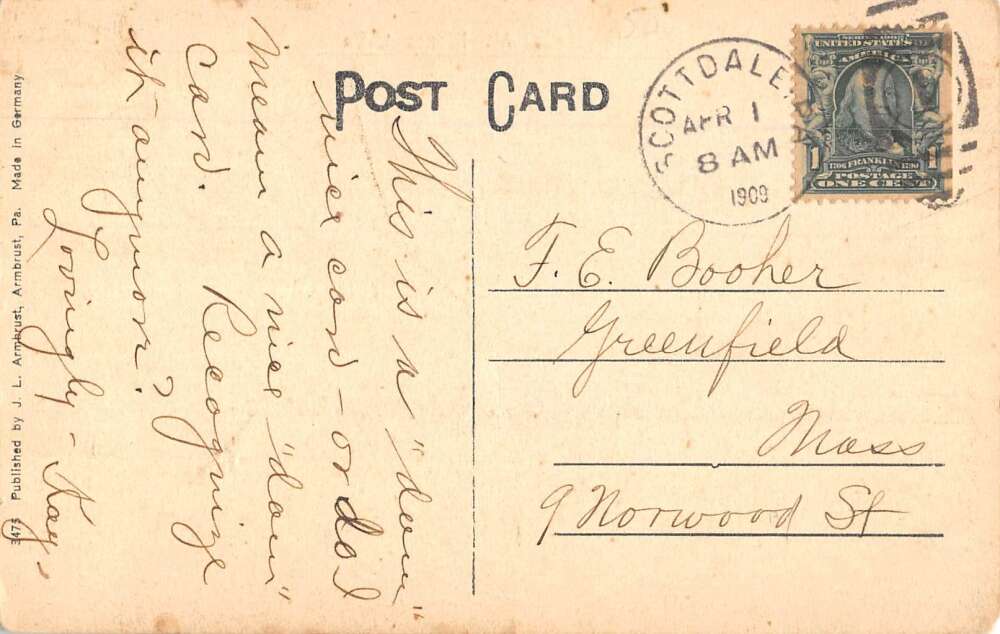 POST CARD
SCOTTDALE, PA.
APR 1
8 AM
1909
SERIES 1902
UNITED STATES OF
AMERICA
1706 FRANKLIN 1790
1 1
POSTAGE
ONE CENT
F. E. Booher
Greenfield
Mass
9 Norwood St
This is a "dam"
nice card - or do I
mean a nice "dam"
card. Recognize
it anymore?
Lovingly - Kay -
3475 Published by J. L. Armbrust, Armbrust, Pa. Made in Germany